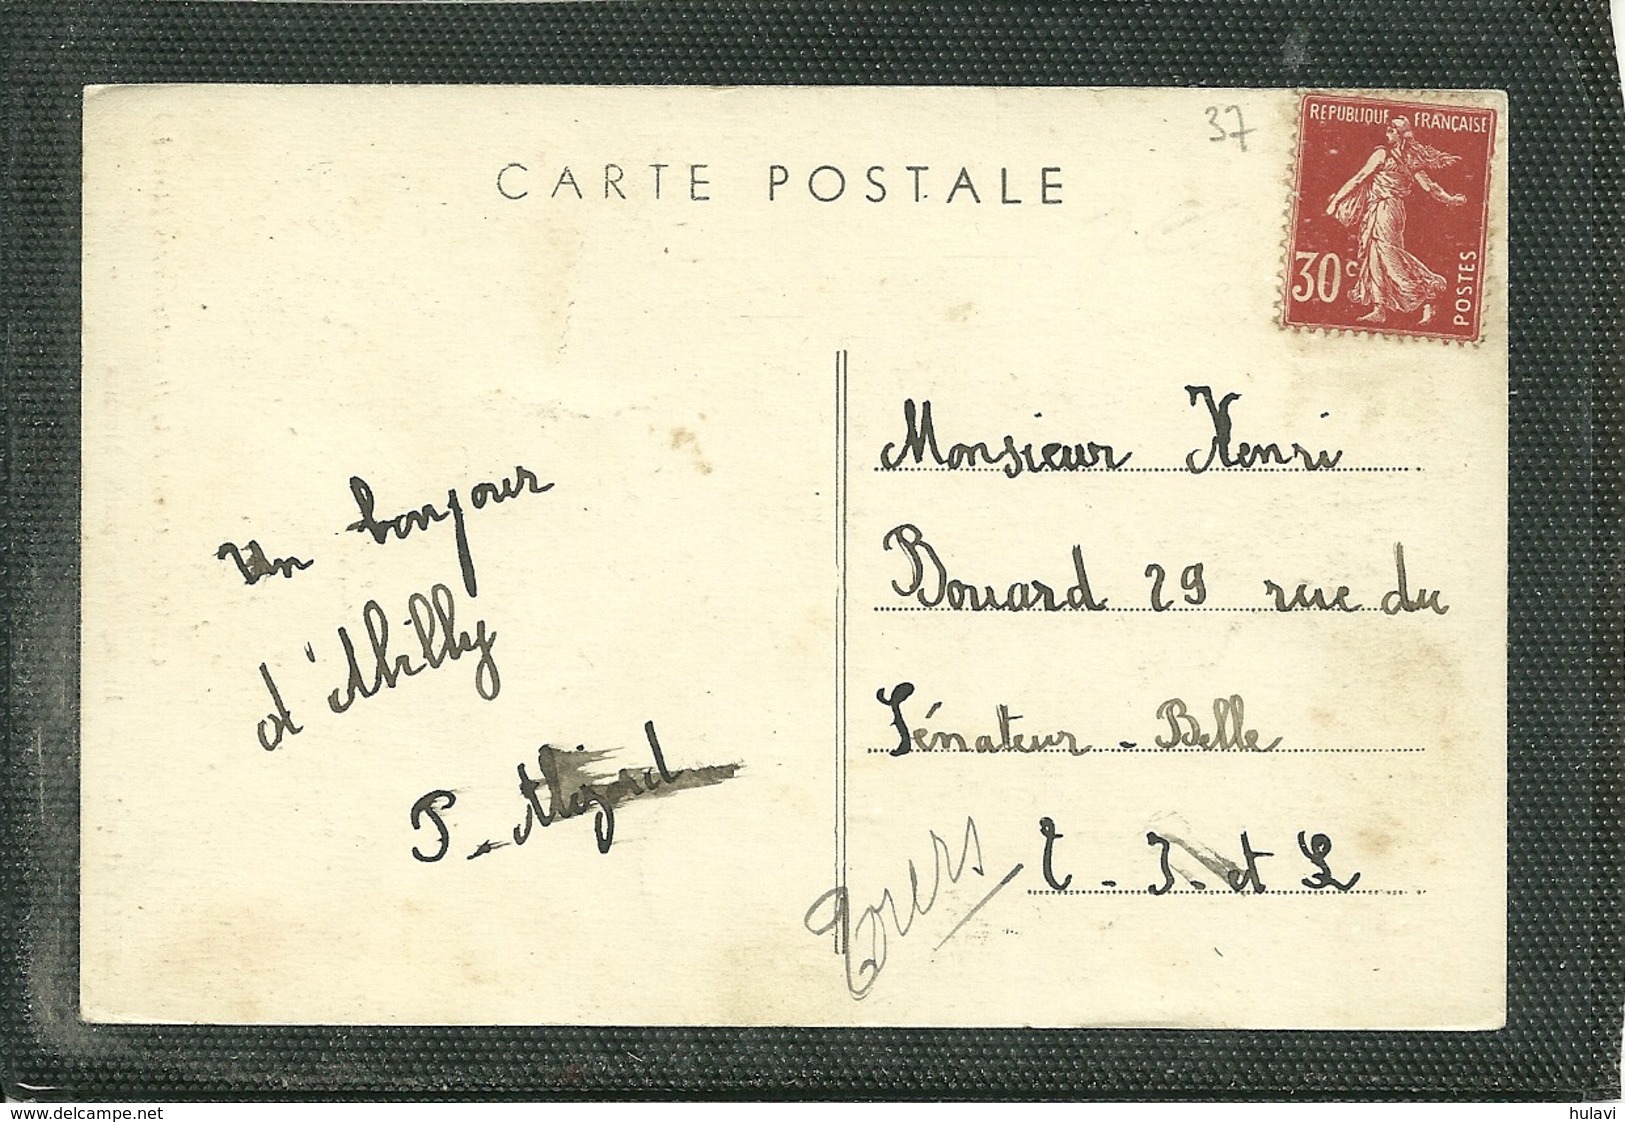 37
REPUBLIQUE FRANÇAISE
30c
POSTES
CARTE POSTALE
Un bonjour
d'Ahilly
Monsieur Henri
Bouard 29 rue du
Sénateur - Belle
T - I - et L
Tours
www.delcampe.net
hulavi